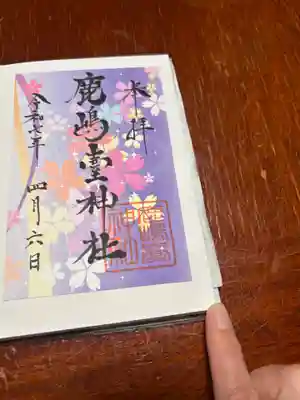 奉拝
鹿嶋臺神社
令和七年 四月六日